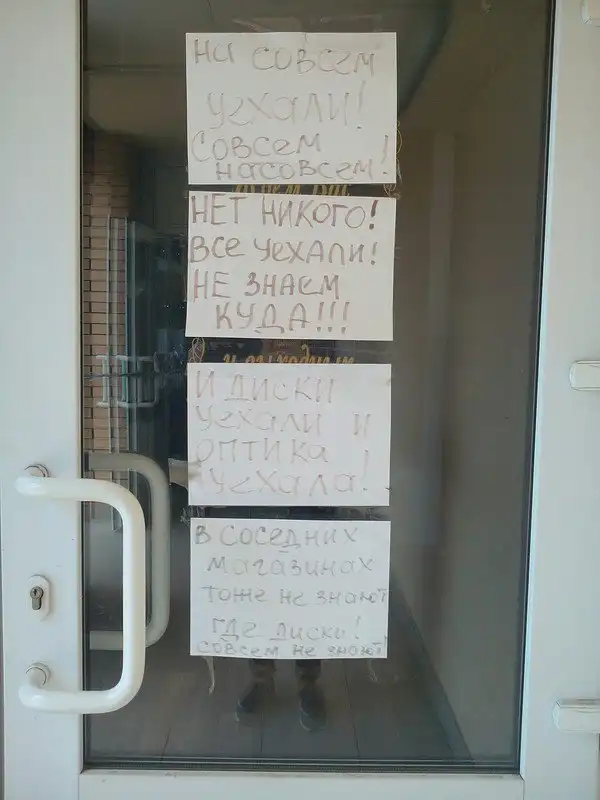 На совсем
уехали!
Совсем
насовсем!
Нет никого!
Все уехали!
Не знаем
куда!!!
И диски
уехали и
оптика
уехала!
В соседних
магазинах
тоже не знают
где диски!
совсем не знают!